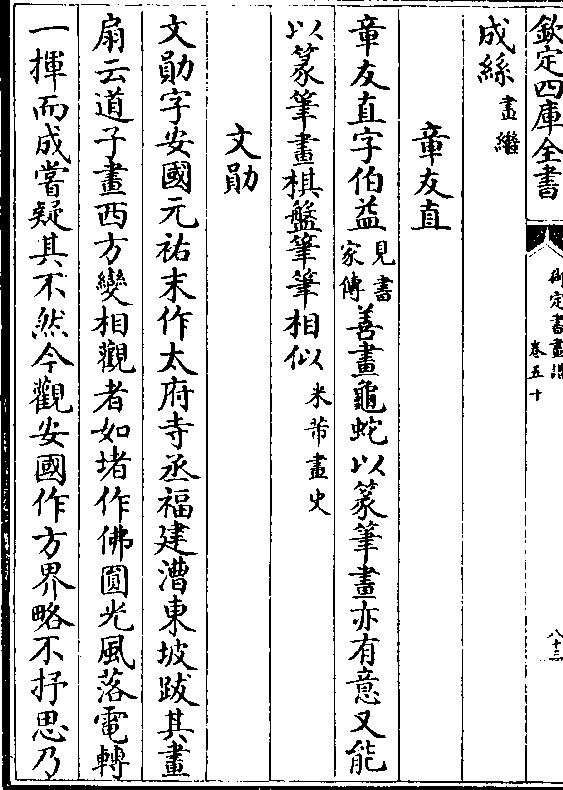 欽定四庫全書
御定書畫譜
卷五十
八十三
成絲畫繼
章友直
章友直字伯益見書家傳善畫龜蛇以篆筆畫亦有意又能
以篆筆畫棋盤筆筆相似米芾畫史
文勛
文勛字安國元祐末作太府寺丞福建漕東坡跋其畫
扇云道子畫西方變相觀者如堵作佛圓光風落電轉
一揮而成嘗疑其不然今觀安國作方界略不抒思乃